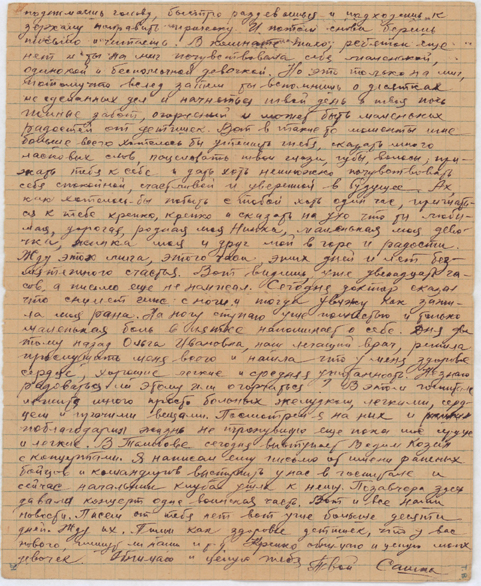 поднимаешь голову, быстро раздеваешься и подходишь к
зеркалу поправить прическу. И потом снова берешь
письмо и читаешь. В комнате тихо, ребяток еще
нет и ты на миг почувствовала себя маленькой,
одинокой и беспомощной девочкой. Но это только на миг,
потому что вслед за тем ты вспомнишь о десятках
не сделанных дел и начнется новый день, а твоя ночь
полная забот, огорчений и может быть маленьких
радостей от детишек. Вот в такие-то моменты мне
больше всего хотелось бы утешить тебя, сказать много
ласковых слов, поцеловать твои глаза, губы, волосы, при-
жать тебя к себе и дать хоть немножко почувствовать
себя спокойной, счастливой и уверенной в будущем. Ах
как хотелось бы побыть с тобой хоть один час, прижать-
ся к тебе крепко, крепко и сказать на ухо что ты люби-
мая, дорогая, родная моя Нинка, маленькая моя дево-
чка, женка моя и друг мой в горе и радости.
Жду этого мига, этого часа, этих дней и лет без-
мятежного счастья. Вот видишь уже двенадцать ча-
сов, а письмо еще не написал. Сегодня доктор сказал
что снимет гипс с ноги и тогда увижу как зажи-
ла моя рана. На ногу ступаю уже полностью и только
маленькая боль в пятке напоминает о себе. Дня
тому назад Ольга Ивановна наш лечащий врач, решила
прослушать меня всего и нашла что у меня здоровое
сердце, хорошие легкие и средняя упитанность. Не знаю
радоваться ли этому или огорчаться? В этом госпитале
лежит много просто больных желудком, легкими, серд-
цем и прочими вещами. Посмотрел я на них и
поблагодарил жизнь не тронувшую еще пока мое сердце
и легкие. В Тамбове сегодня выступает Вадим Козин
с концертами. Я написал ему письмо от имени раненых
бойцов и командиров выступить у нас в госпитале и
сейчас начальник клуба ушла к нему. Позавчера здесь
давала концерт одна воинская часть. Вот и все наши
новости. Писем от тебя нет вот уже больше десяти
дней. Жду их. Пиши как здоровье детишек, что у вас
нового, пишут ли наши и т.д. Крепко обнимаю и целую моих
девочек. Обнимаю и целую тебя. Твой Сашка